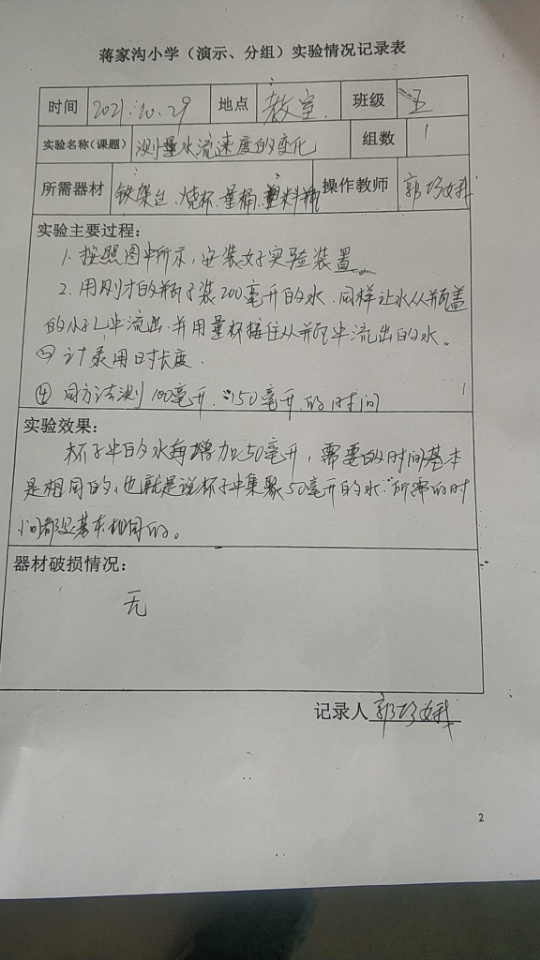 蒋家沟小学（演示、分组）实验情况记录表
时间 2021.10.29 地点 教室. 班级 五
实验名称(课题) 测量水流速度的变化 组数 1
所需器材 铁架台、烧杯、量桶、塑料瓶 操作教师 郭
实验主要过程：
1. 按照图中所示，安装好实验装置
2. 用刚才的瓶子装200毫升的水，同样让水从瓶盖
的小孔中流出，并用量杯接住从瓶中流出的水。
③ 计录用时长度.
④ 同方法测100毫升、150毫升的时间
实验效果：
杯子中的水每增加50毫升，需要的时间基本
是相同的、也就是说杯子中集聚50毫升的水，所需的时
间都是基本相同的。
器材破损情况：
无
记录人 郭
2